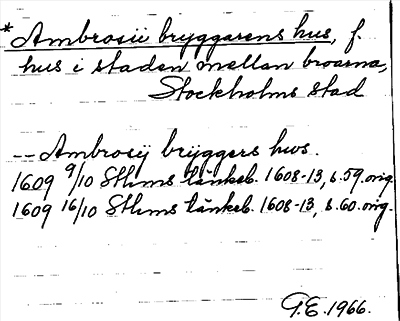 *Ambrosii bryggarens hus, f.
hus i staden mellan broarna,
Stockholms stad
-- Ambrosij bryggers hws.
1609 9/10 Sthms tänkeb. 1608-13, s.59. orig.
1609 16/10 Sthms tänkeb. 1608-13, s.60. orig.
G.E. 1966.